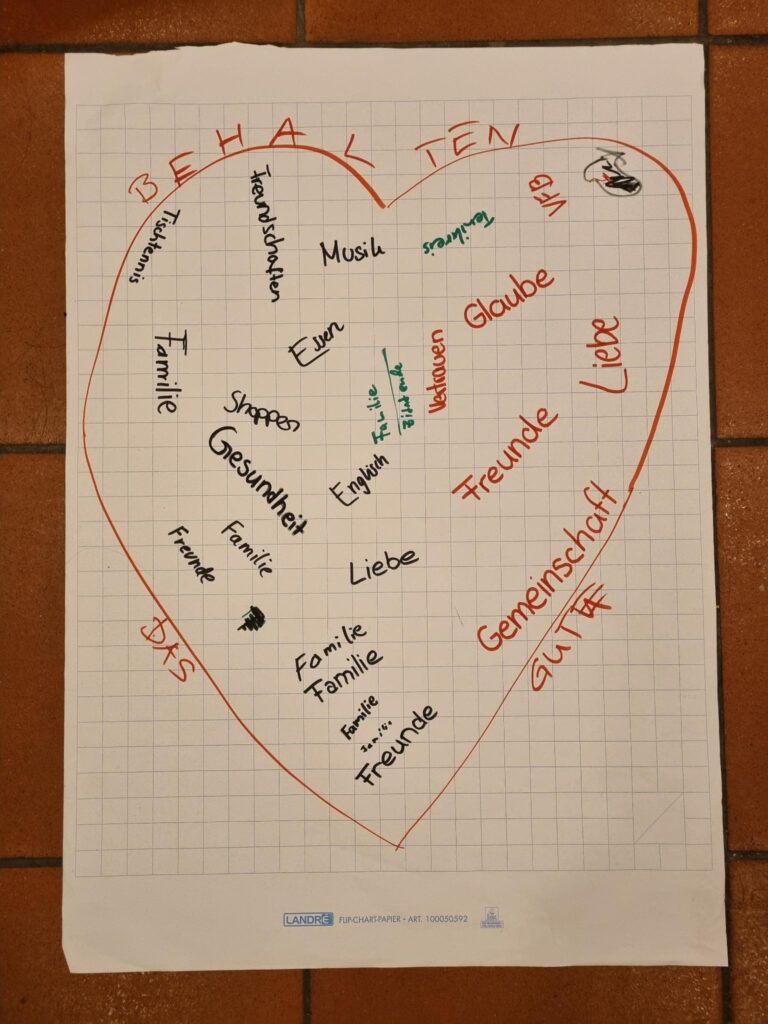 BEHALTEN
VFB
Tischtennis
Freundschaften
Musik
Glaube
Essen
Vertrauen
Liebe
Familie
Familie
Shoppen
Freunde
Gesundheit
Englisch
Freunde
Familie
Liebe
Gemeinschaft
DAS
GUTE
Familie
Familie
Familie
Familie
Freunde
LANDRÉ FLIP-CHART-PAPIER • ART. 100050592